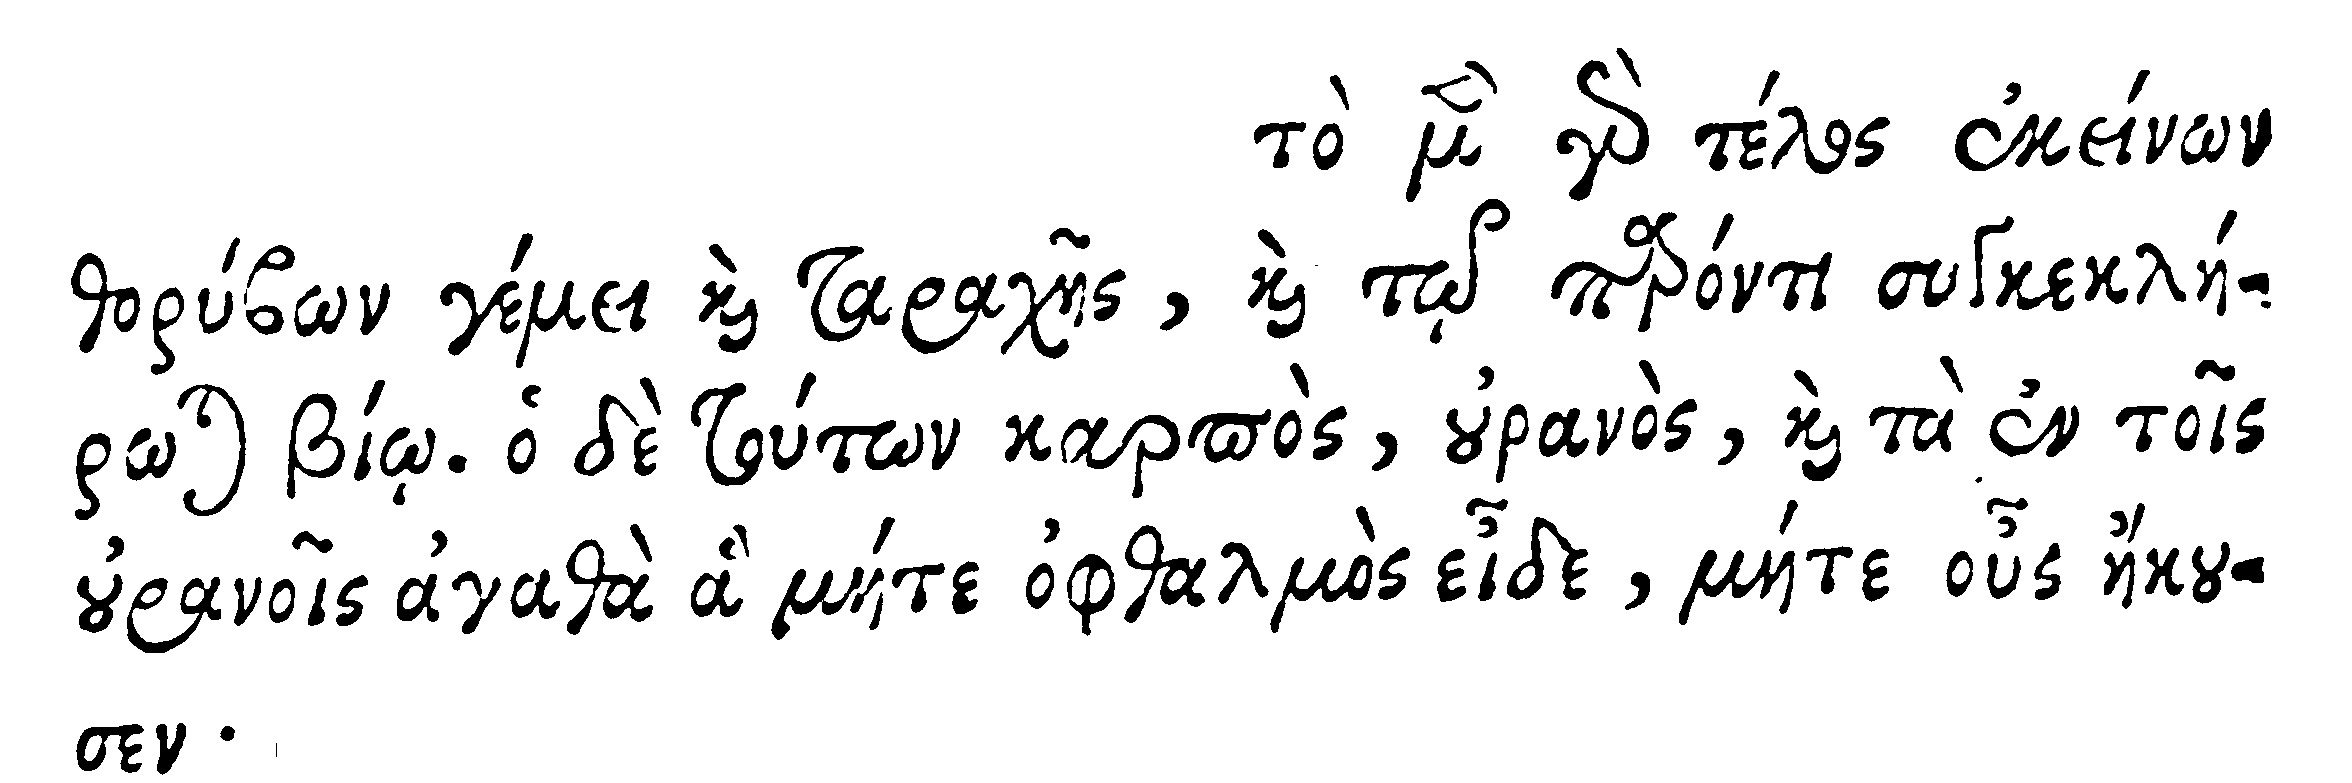 τὸ μὲν γὰρ τέλος ἐκείνων
θορύβων γέμει καὶ ταραχῆς, καὶ τῷ παρόντι συγκεκλή-
ρωται βίῳ. ὁ δὲ τούτων καρπὸς, οὐρανὸς, καὶ τὰ ἐν τοῖς
οὐρανοῖς ἀγαθὰ ἃ μήτε ὀφθαλμὸς εἶδε, μήτε οὖς ἤκου-
σεν.